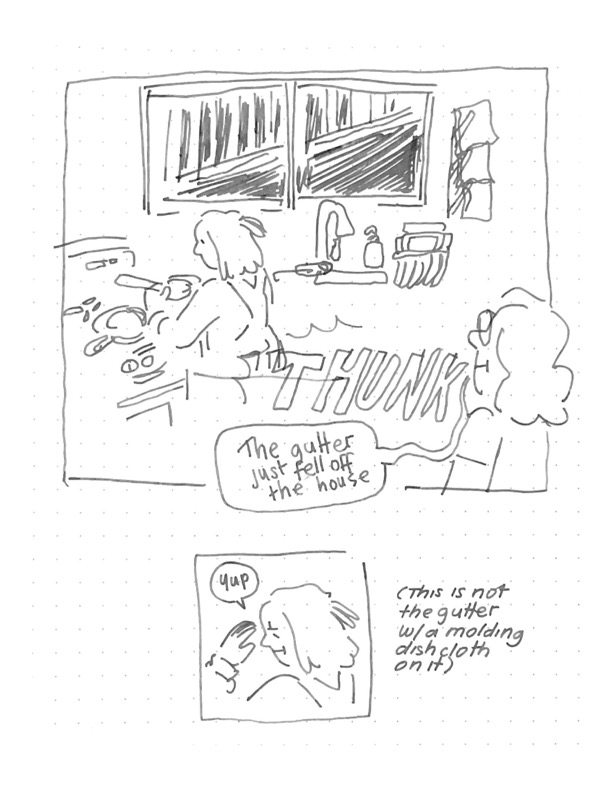 THUNK
The gutter
just fell off
the house
yup
(This is not
the gutter
w/a molding
dishcloth
on it)